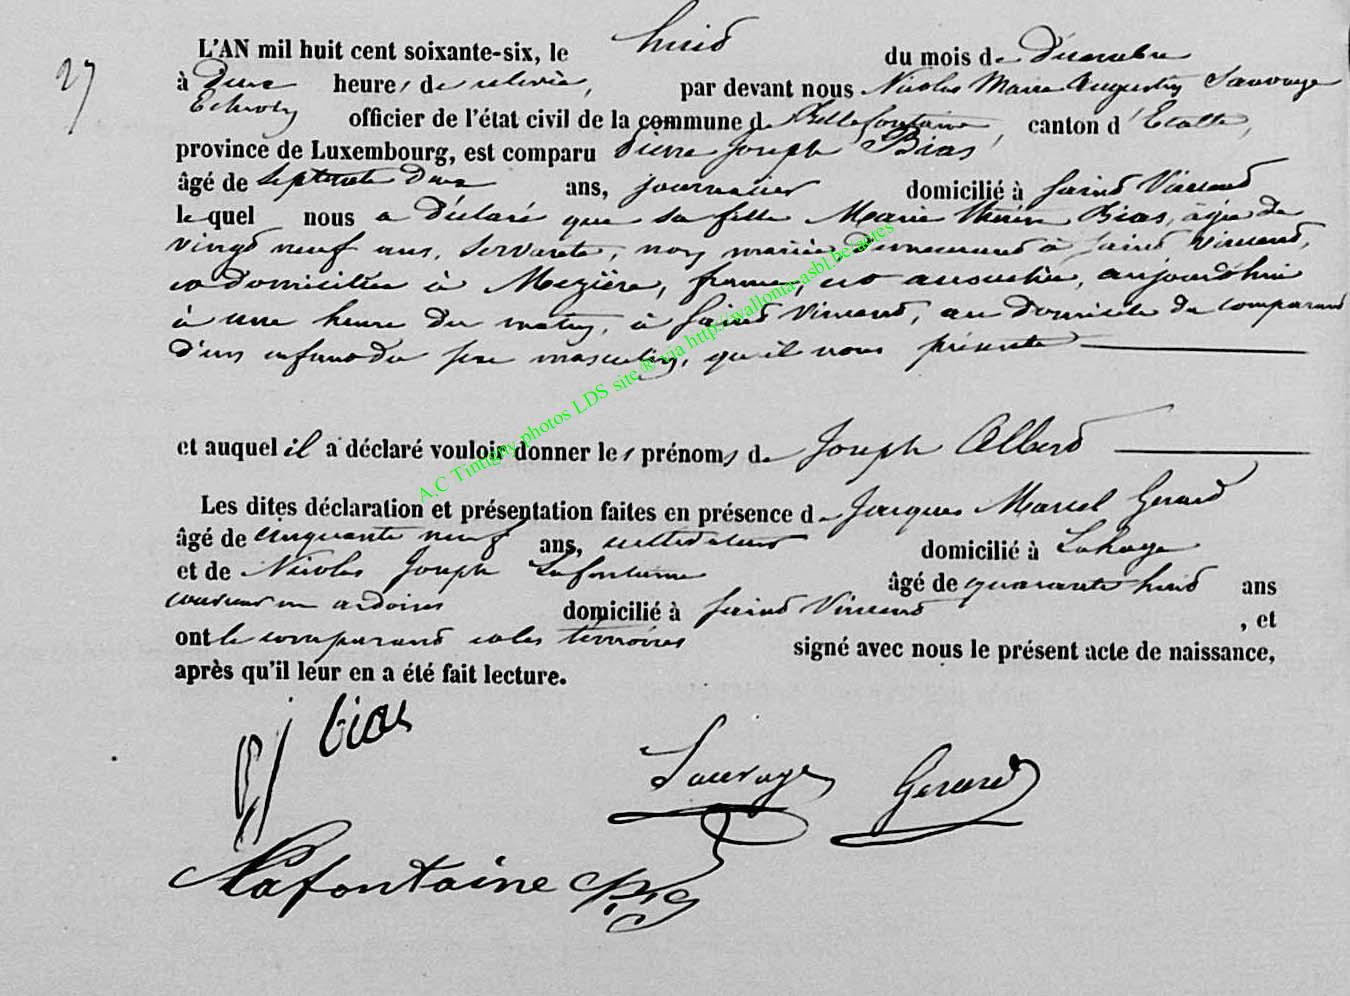 27
L'AN mil huit cent soixante-six, le huit du mois de Décembre
à Deux heures de relevée, par devant nous Nicolas Marie Augustin Sauvage
Echevin officier de l'état civil de la commune de Bellefontaine, canton d'Etalle,
province de Luxembourg, est comparu Pierre Joseph Bias
âgé de Septante Deux ans, journalier domicilié à Saint Vincent
lequel nous a Déclaré que sa fille Marie Thérèse Bias, âgée de
vingt neuf ans, Servante, non mariée, Demeurant à Saint Vincent,
et domiciliée à Mezière, france, est accouchée, aujourdhui
à une heure du matin, à Saint Vincent, au Domicile du comparant
d'un enfant du sexe masculin, qu'il nous présente
et auquel il a déclaré vouloir donner les prénoms de Joseph Albert
Les dites déclaration et présentation faites en présence de Jacques Marcel Gerard
âgé de cinquante neuf ans, cultivateur domicilié à Lahage
et de Nicolas Joseph Lafontaine âgé de quarante huit ans
couvreur en ardoises domicilié à Saint Vincent , et
ont le comparant et les témoins signé avec nous le présent acte de naissance,
après qu'il leur en a été fait lecture.
pj bias
Sauvage Gerard
Lafontaine
A.C Tintigny photos LDS site ® via http://wallonia-asbl.be/actes